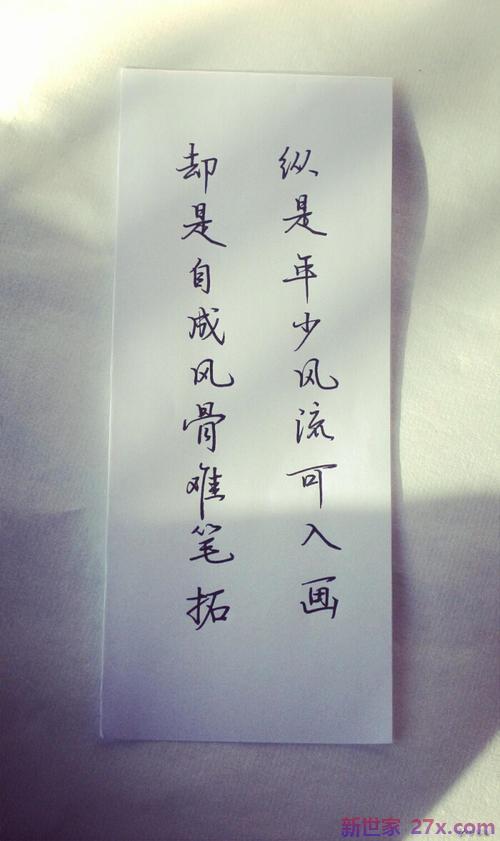 纵是年少风流可入画
却是自成风骨难笔拓
新世家 27x.com